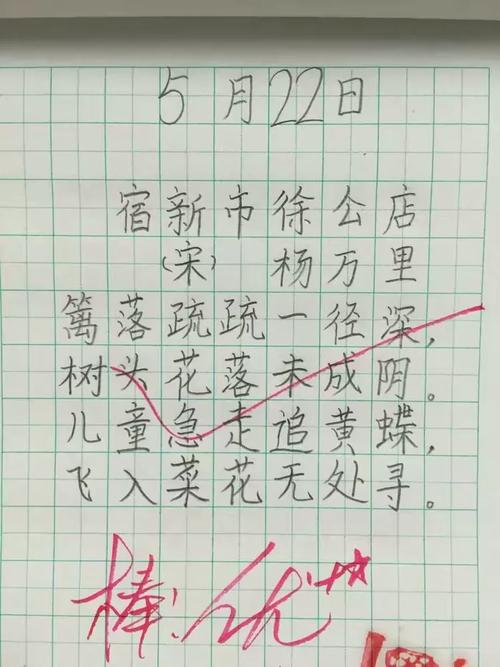 5月22日
宿新市徐公店
(宋) 杨万里
篱落疏疏一径深，
树头花落未成阴。
儿童急走追黄蝶，
飞入菜花无处寻。
棒!优++